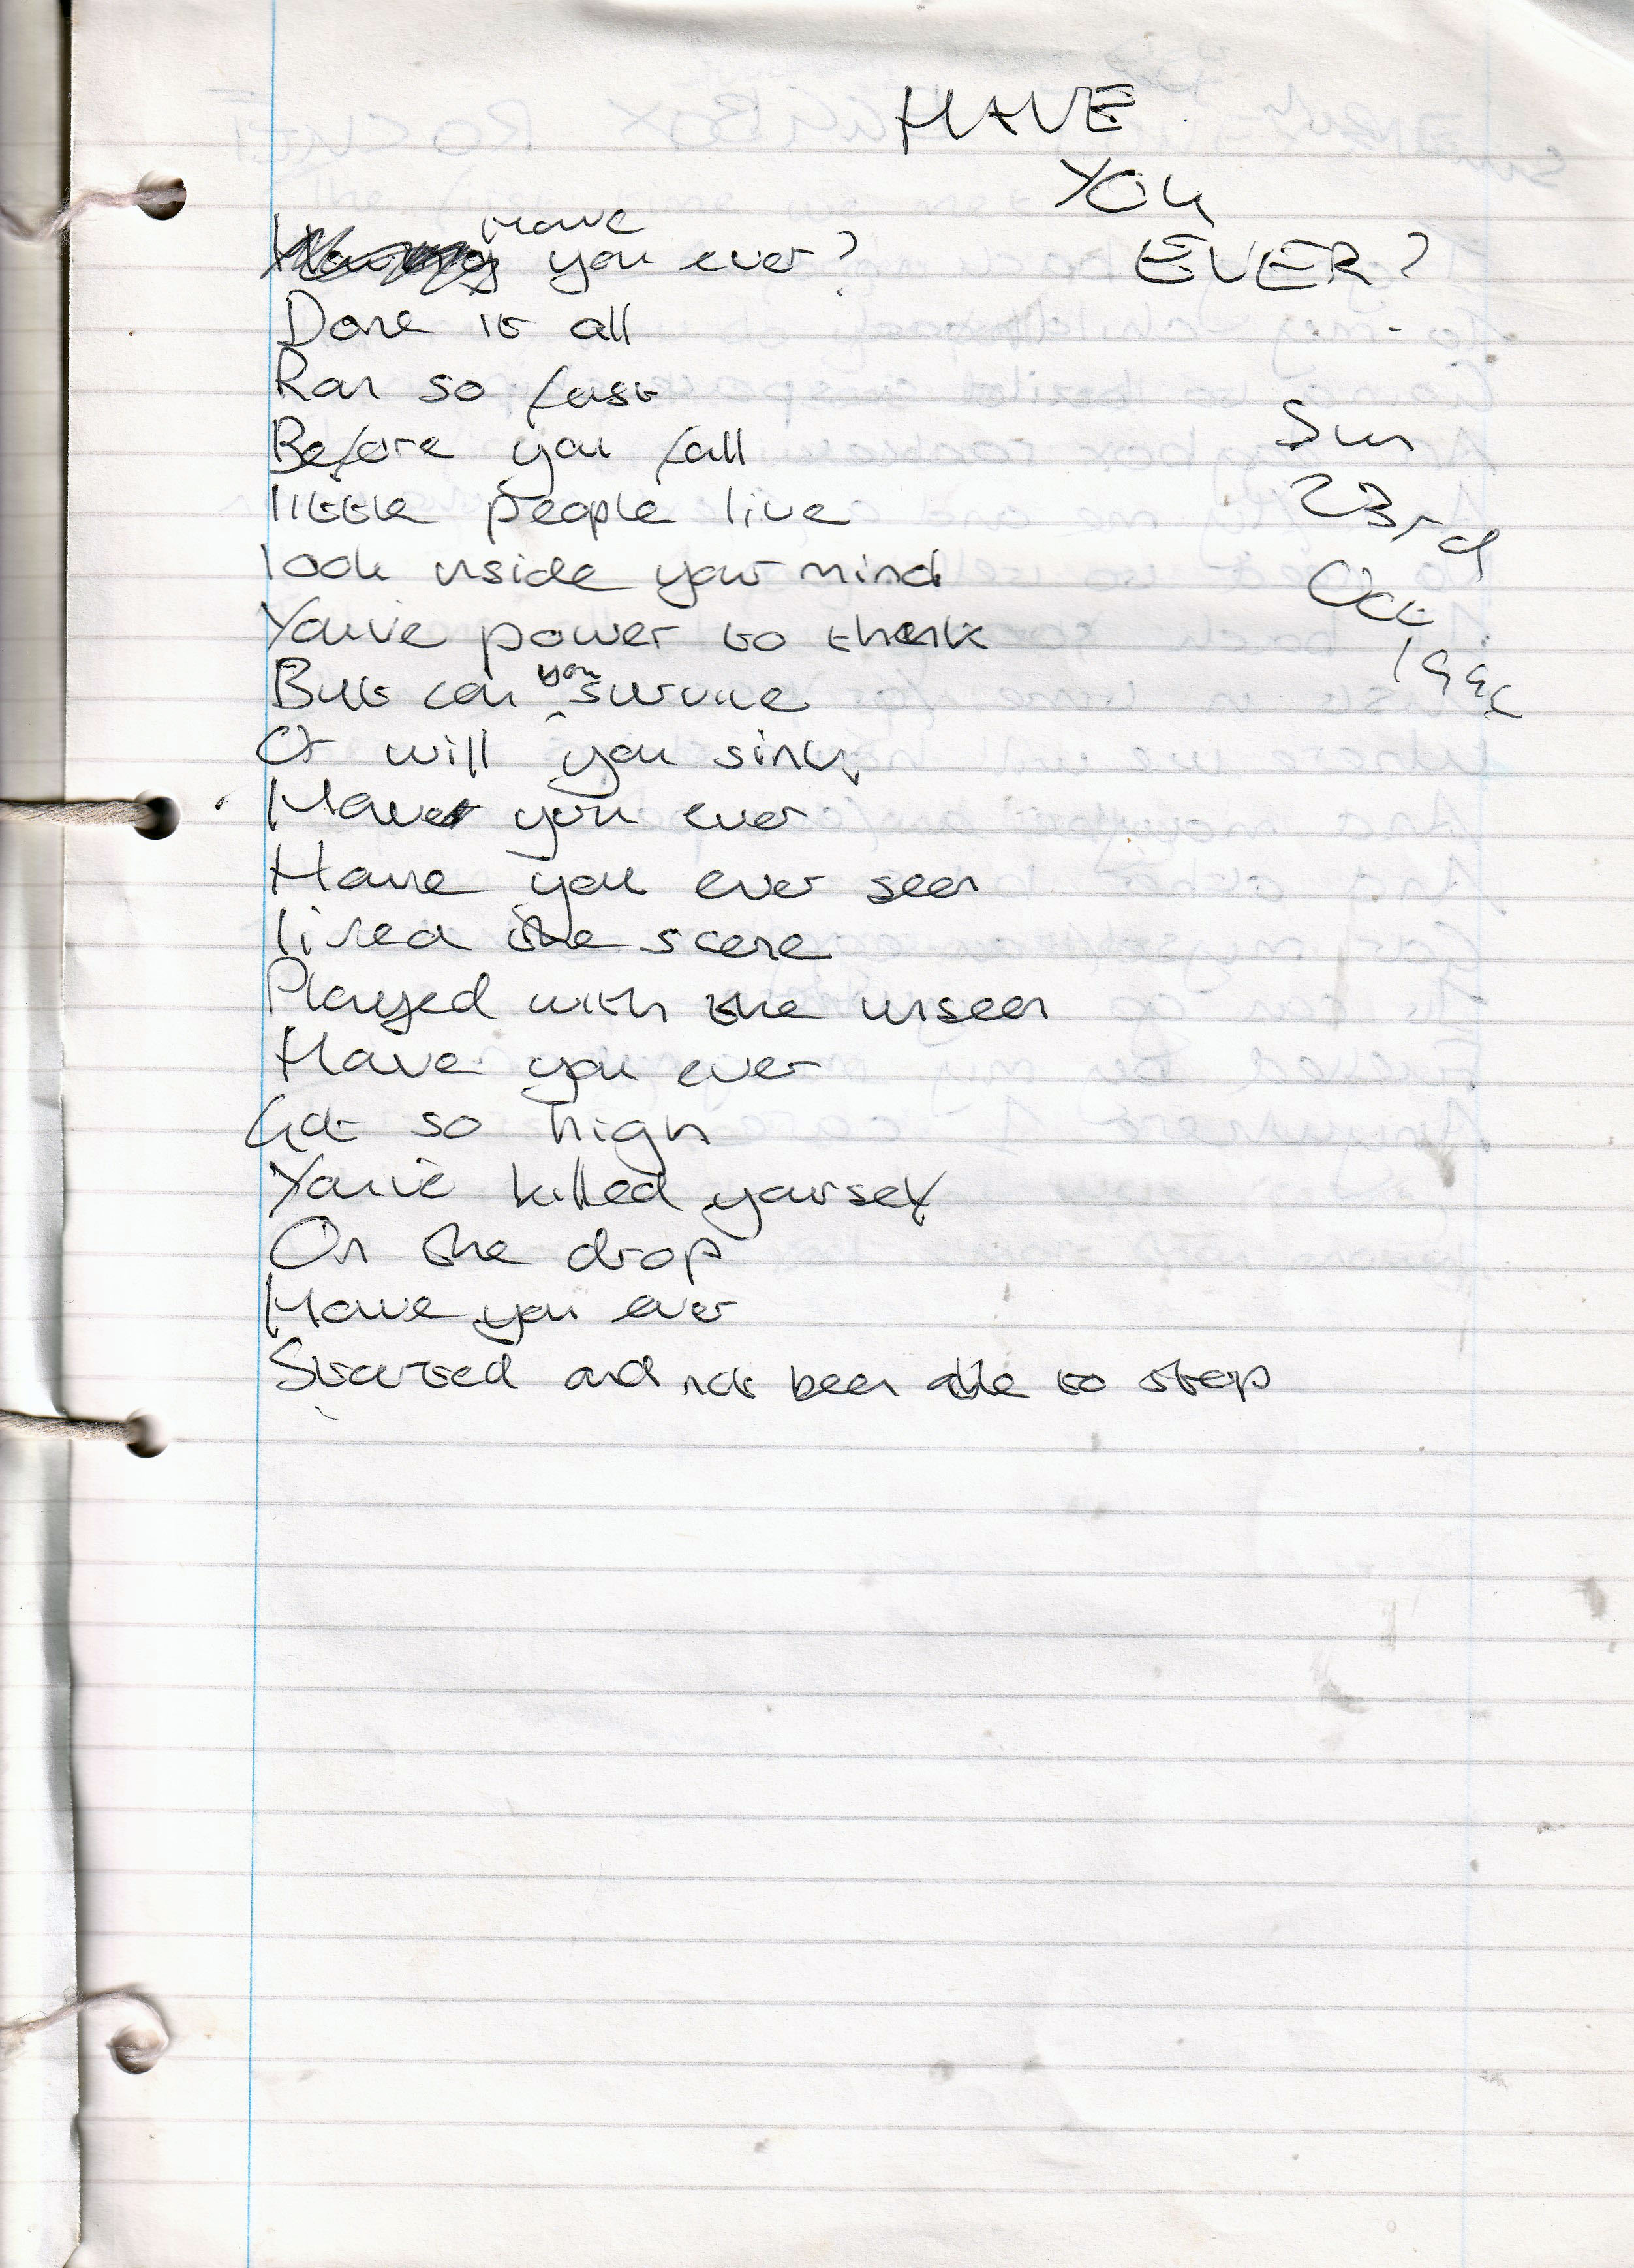 HAVE
YOU
EVER?
Have you ever?
Done it all
Ran so fast
Before you fall
little people live
look inside your mind
You've power to think
But can you survive
Or will you sink
Have you ever
Have you ever seen
lived the scene
Played with the unseen
Have you ever
Got so high
You've killed yourself
On the drop
Have you ever
Started and not been able to stop
Sun
23rd
Oct